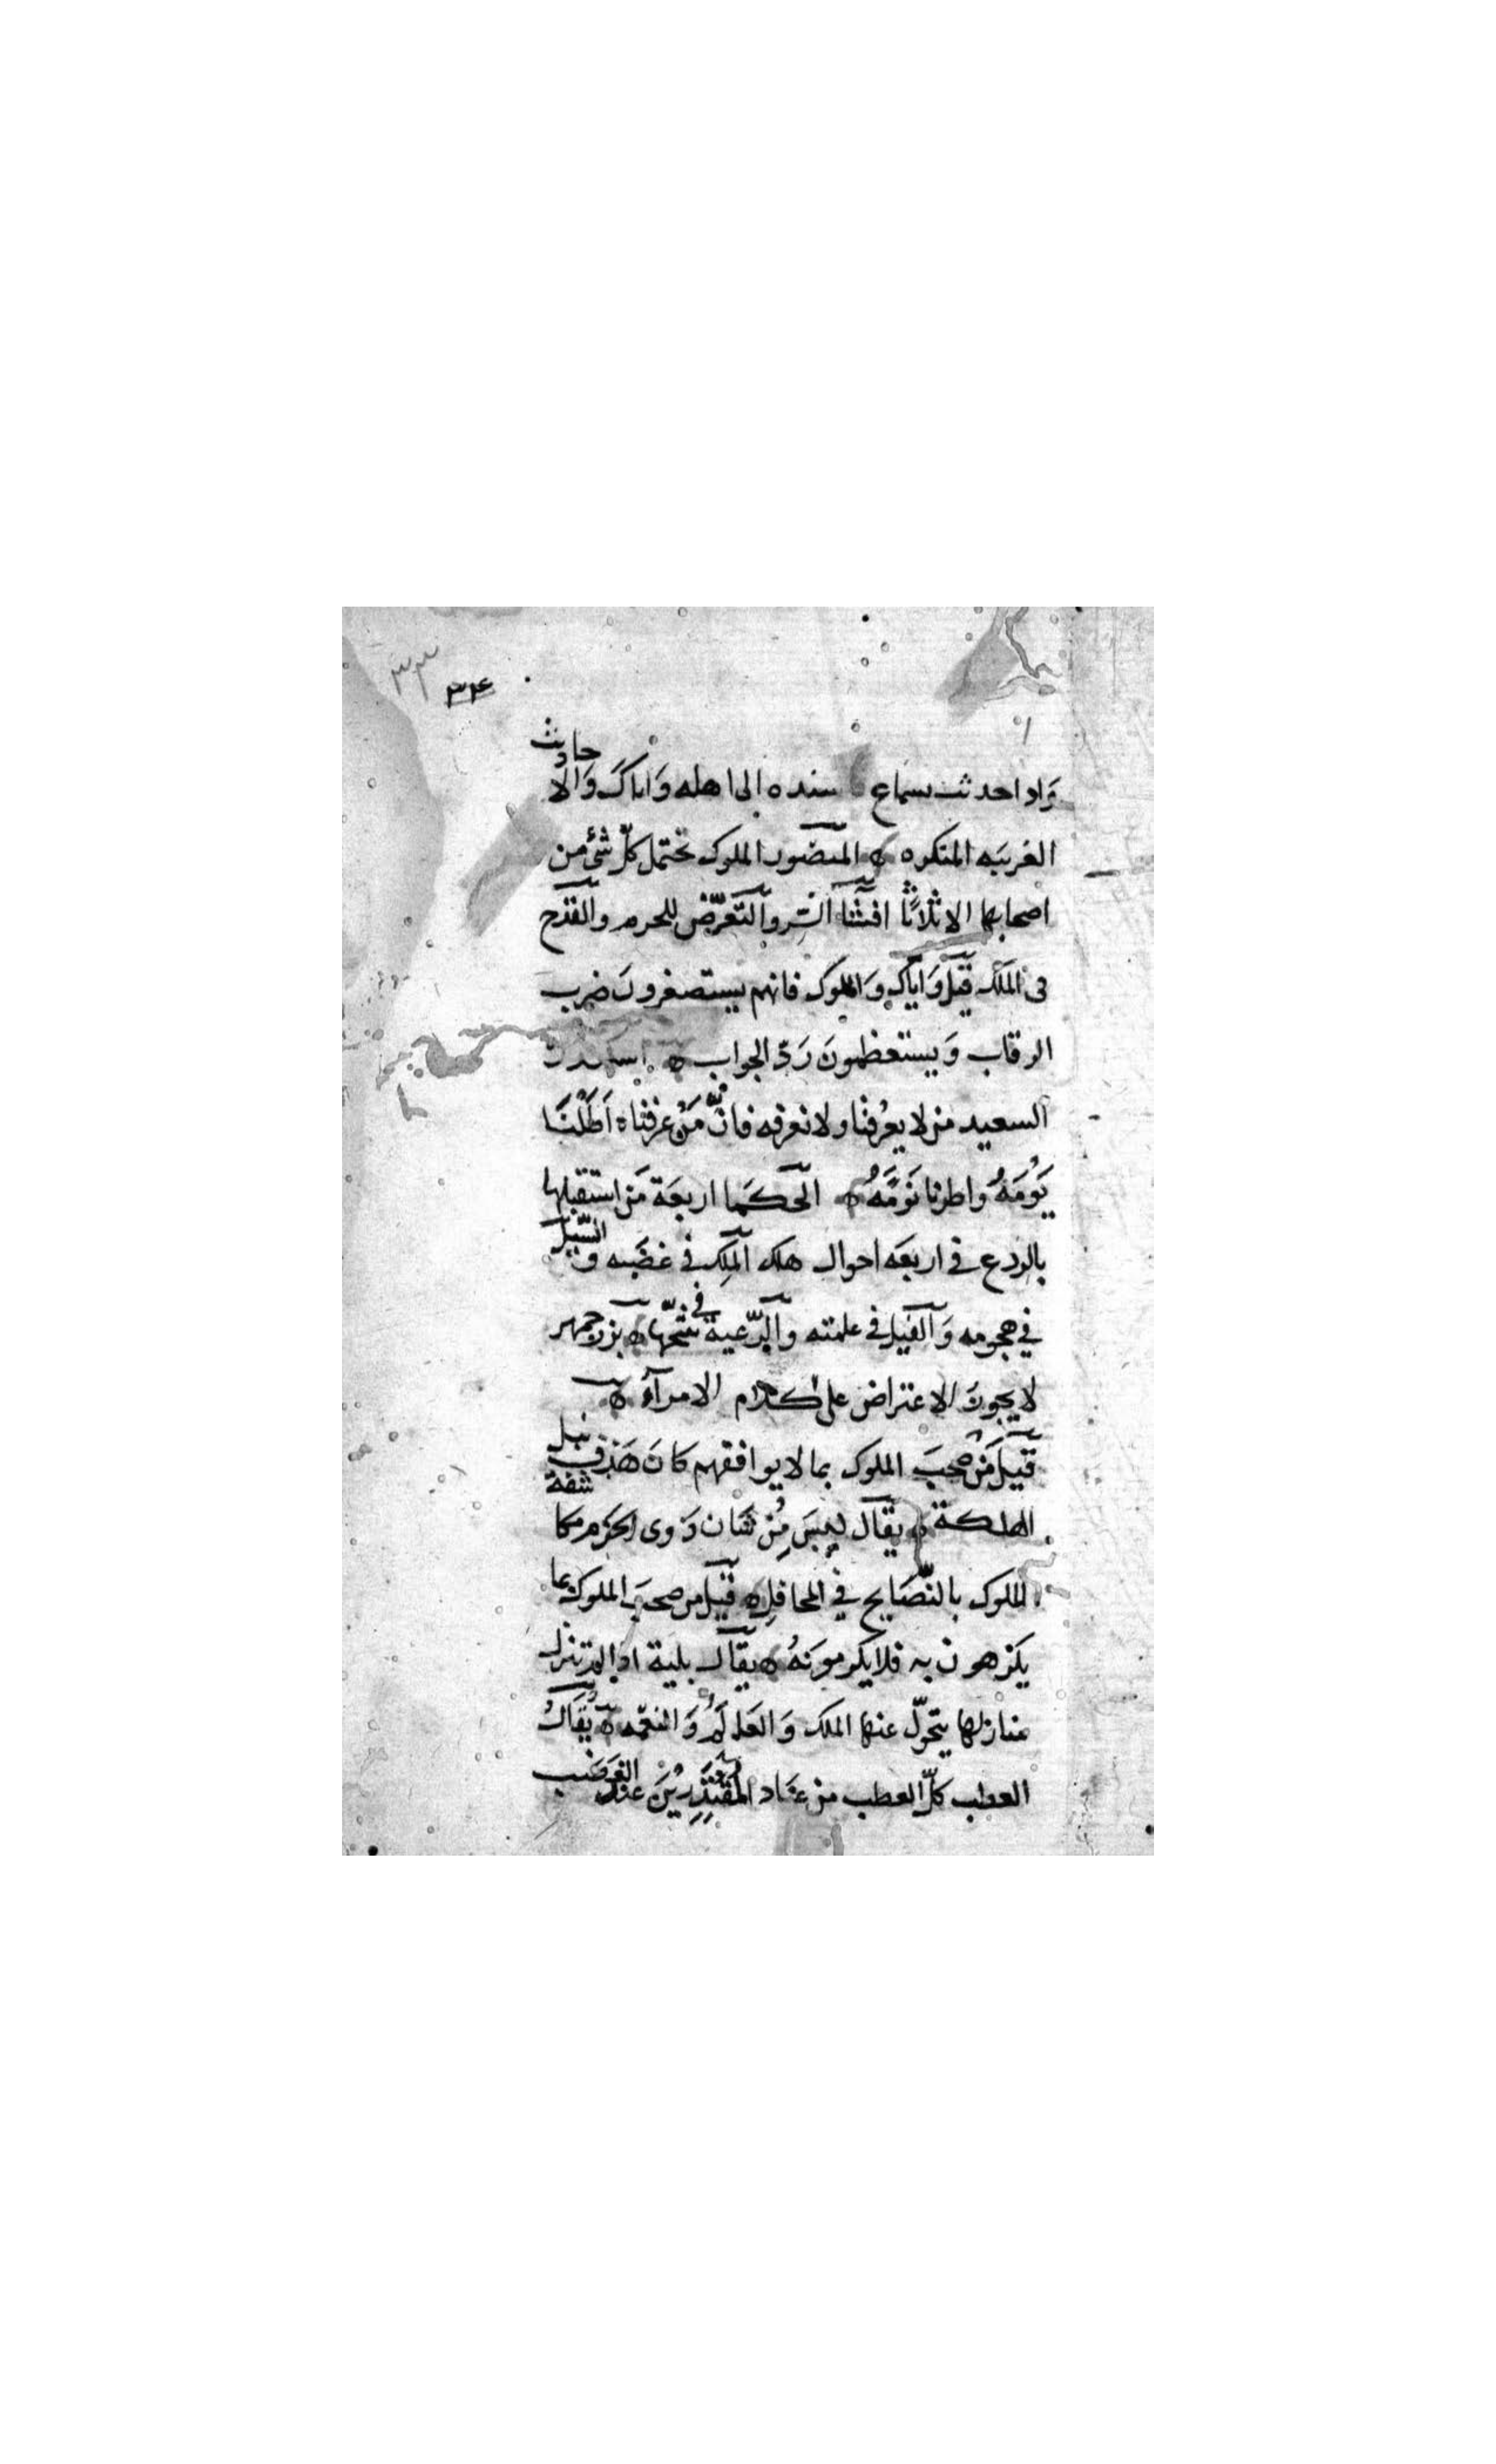 ٣٣ ٣٤
واذا حدثت بسماع سنده الى اهله وَاياكَ وَالاحاديث
الغريبَه المنكره المنصُور الملوك تحتمل كلّ شئ من
اصحابها الا ثلاثًا افشآ السّر والتَعرّض للحرم والقدح
فى الملك قيلَ وَاياك وَالملوك فانهم يستصغرونَ ضرب
الرقاب وَيستعظمونَ رَدّ الجواب
السعيد من لا يعرُفنا ولا نعرفه فانّ مَنْ عرفناه اَطَلْنَا
يَوْمَهُ واطرنا نَوْمَهُ الحكمَا اربعَة مَن استقبلها
بالردع في اربعَه احوال هلك الملِك في غضَبه وَ السّيل
في هجومه وَالفيل في غلمته والرّعية في بزرجمهر
لا يجوز الاعتراض على كلام الامرآءِ
قيلَ مَنْ صحِبَ الملوك بما لا يوافقهم كانَ هَدَف نبل
الهلكة يقال ليسَ مِنْ شان ذوى الحَزم مكاشفة
الملوك بالنّصَايح في المحافِل قيل من صحبَ الملوك بما
يكرهون به فلا يكرمونهُ يقال بلية اذا لم تنزل
منازلها يتحوّل عنها الملك وَالعَالَمُ وَالنعمه يُقالُ
العطب كلّ العطب من عنَاد المقتدِرِيْنَ عند الغضَب